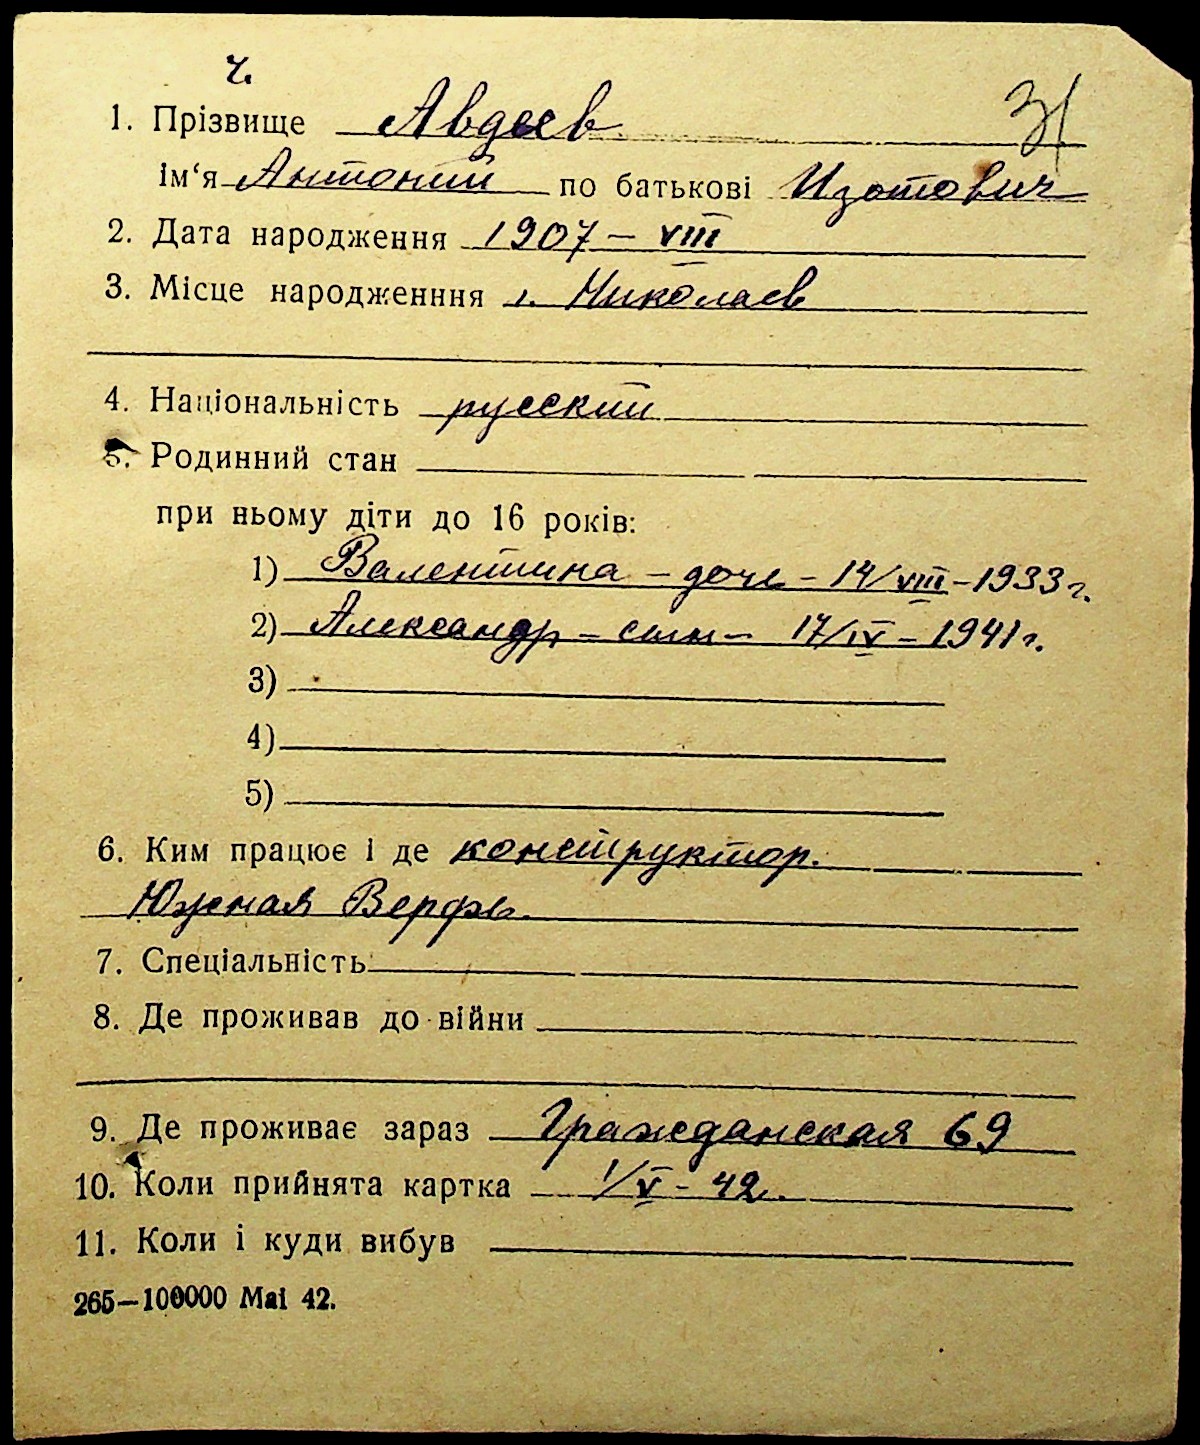 ч.
31
1. Прізвище Авдеев
ім‘я Антоний по батькові Изотович
2. Дата народження 1907 – VIII
3. Місце народженння г. Николаев
4. Національність русский
5. Родинний стан
при ньому діти до 16 років:
1) Валентина – дочь – 14/VIII – 1933 г.
2) Александр – сын – 17/IV – 1941 г.
3)
4)
5)
6. Ким працює і де конструктор.
Южная Верфь.
7. Спеціальність
8. Де проживав до війни
9. Де проживає зараз Гражданская 69
10. Коли прийнята картка 1/V - 42.
11. Коли і куди вибув
265—100000 Mai 42.